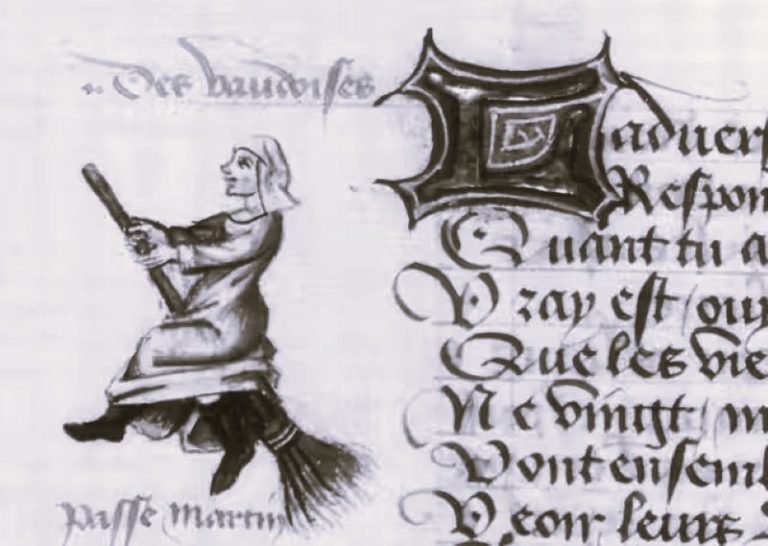 Des vaudoises
Laduers
Respon
Quant tu a
Vray est / ouy
Que les vie
Ne vingt / m
Vont ensembl
Veoir leurs
passe martin